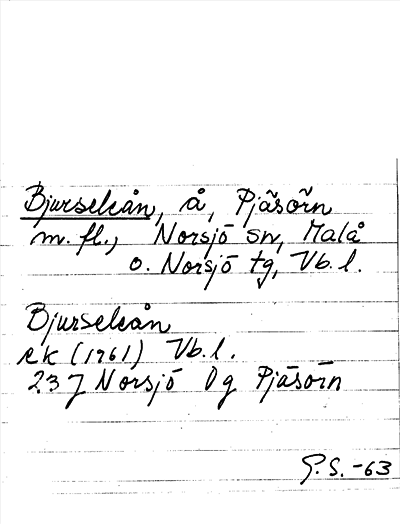 Bjurseleån, å, Pjäsörn
m.fl., Norsjö sn, Malå
o. Norsjö tg, Vb.l.
Bjurseleån
ek (1961) Vb.l.
23 J Norsjö Og Pjäsörn
G.S. -63